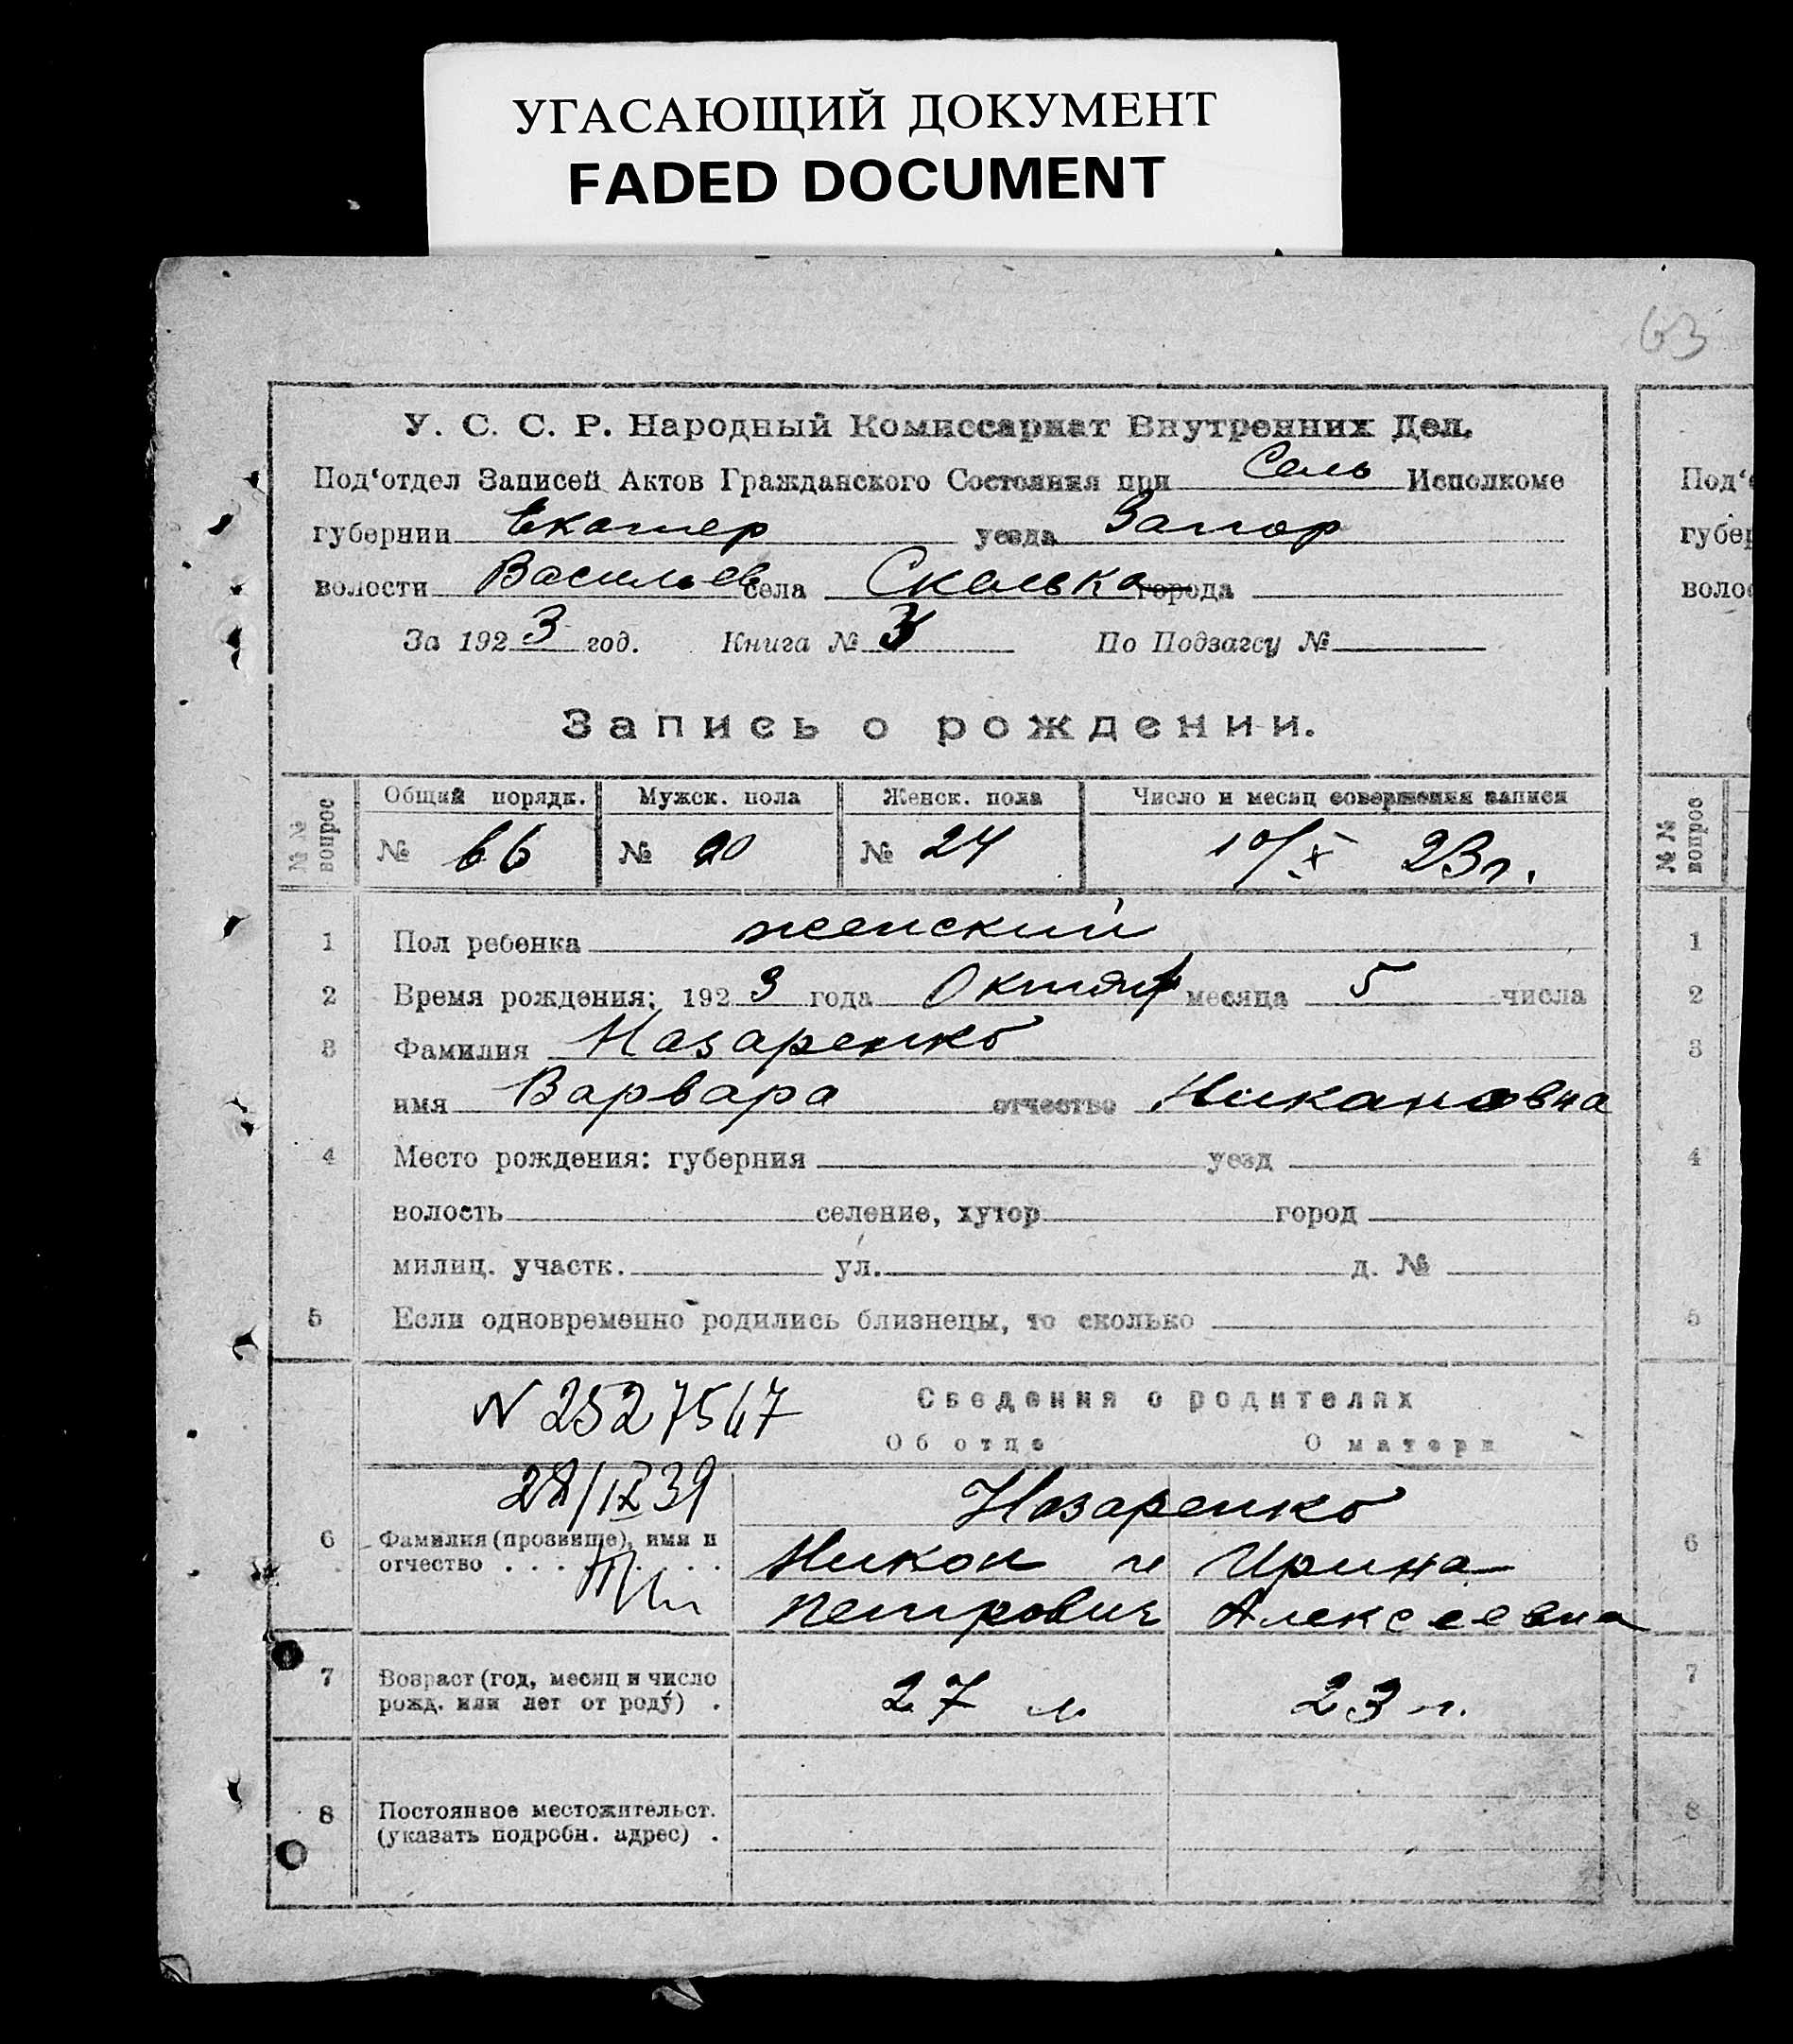 УГАСАЮЩИЙ ДОКУМЕНТ
FADED DOCUMENT
63
У. С. С. Р. Народный Комиссариат Внутренних Дел.
Под‘отдел Записей Актов Гражданского Состояния при Сель Исполкоме
губернии Екатер уезда Запор
волости Васильев села Скелька города
За 1923 год. Книга № 3 По Подзагсу №
Запись о рождении.
№№ вопрос
Общий порядк. Мужск. пола Женск. пола Число и месяц совершения записи
№ 66 № № 24 10/X 23 г.
1 Пол ребенка женский
2 Время рождения: 1923 года Октяб месяца 5 числа
3 Фамилия Назаренко
имя Варвара отчество Никановна
4 Место рождения: губерния уезд
волость селение, хутор город
милиц. участк. ул. д. №
5 Если одновременно родились близнецы, то сколько
N 2527567 Сведения о родителях
Об отце О матери
28/IX 39 Назаренко
6 Фамилия (прозвище), имя и отчество . . . . Никон и Ирина
Петрович Алексеевна
7 Возраст (год, месяц и число рожд. или лет от роду) . 27 л 23 г.
8 Постоянное местожительст. (указать подробн. адрес) .
Под‘
губер
волос
№№ вопрос
1
2
3
4
5
6
7
8